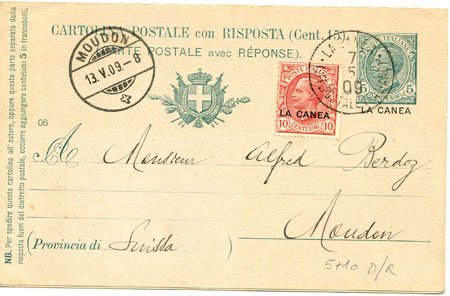 CARTOLINA POSTALE con RISPOSTA (Cent. 15
(CARTE POSTALE avec RÉPONSE).
MOUDON
13.V.09.-8
LA CANEA
7
5
09
5 5
LA CANEA
POSTE ITALIANE
LA CANEA
10 CENTESIMI 10
06
A Monsieur Alfred Berdoz
Moudon
(Provincia di Suissa)
5+10 D/R
NB. Per spedire questa cartolina all'estero, oppure questa parte separata dalla
risposta fuori del distretto postale, occorre aggiungere centesimi 5 in francobolli.